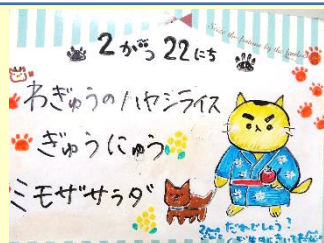 2がつ22にち
わぎゅうのハヤシライス
ぎゅうにゅう
ミモザサラダ
だれでしょう?